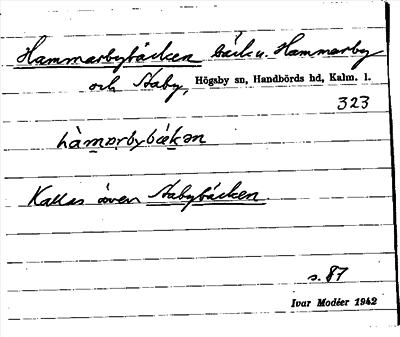 Hammarbybäcken bäck v. Hammarby
och Staby, Högsby sn, Handbörds hd, Kalm. l.
323
hàmarbybækən
Kallas även Stabybäcken.
s. 87
Ivar Modéer 1942